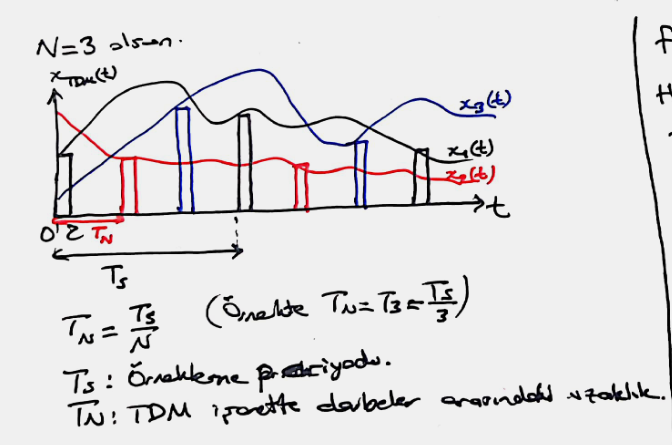 N=3 olsun.
x_TDM(t)
x₃(t)
x₁(t)
x₂(t)
t
0 τ T_N
T_S
T_N = T_S/N (Örnekte T_N = T_3 = T_S/3)
T_S : Örnekleme periyodu.
T_N : TDM işarette darbeler arasındaki uzaklık.